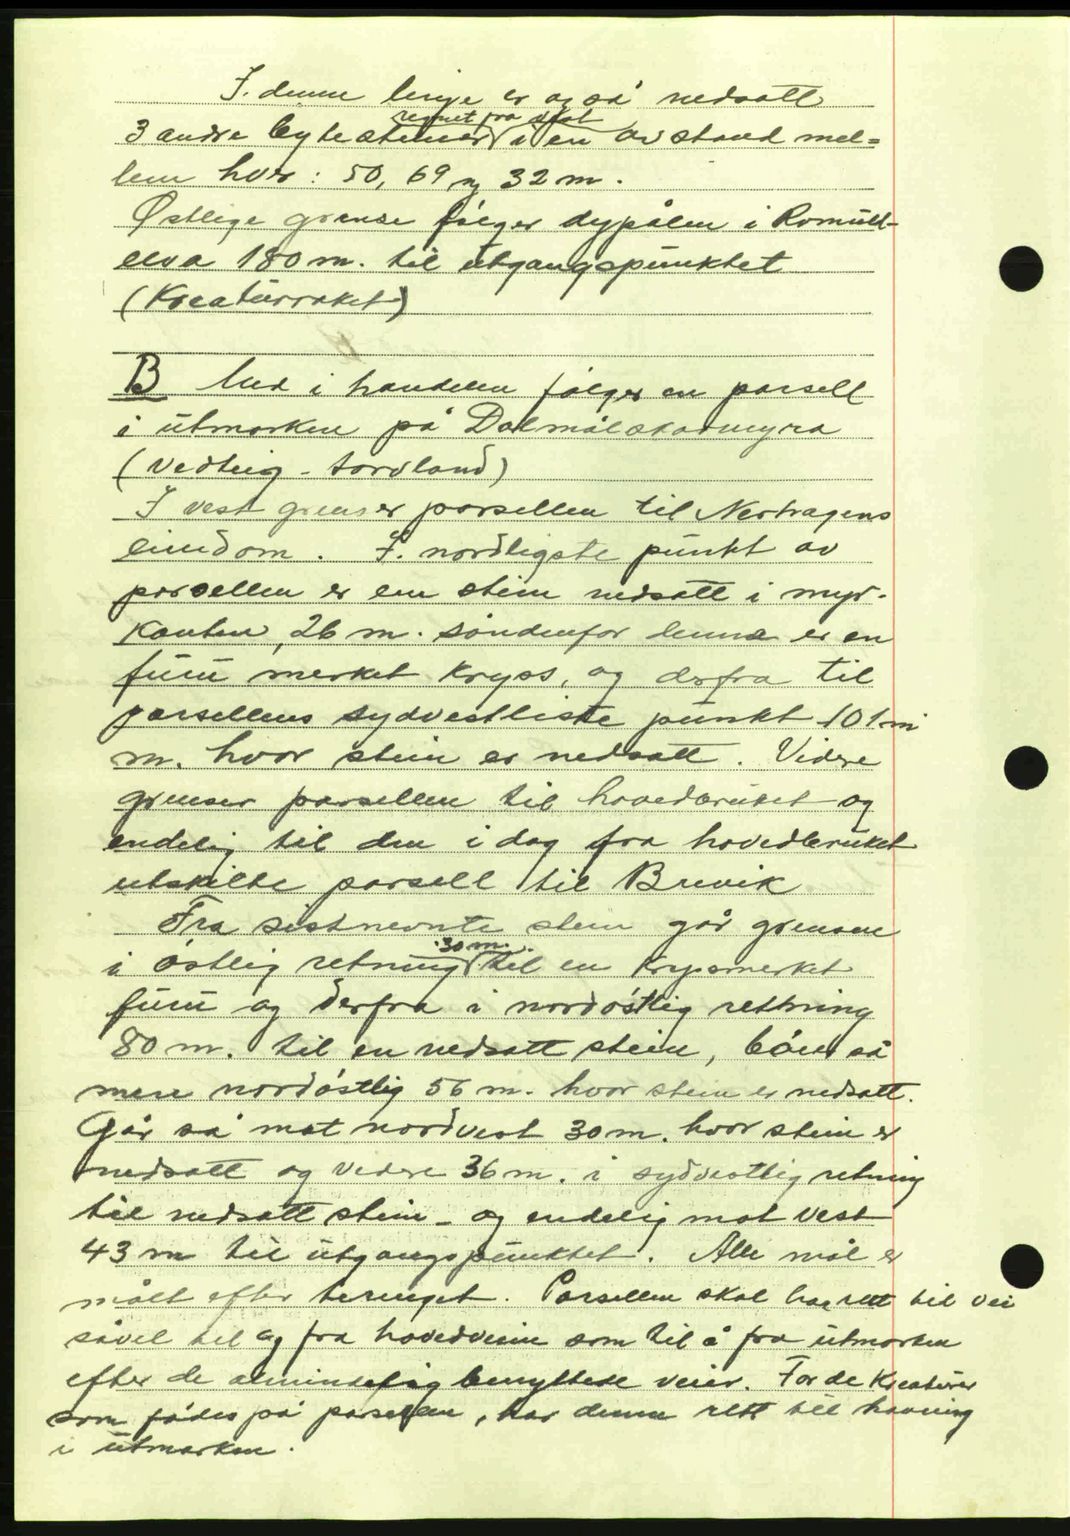 I. denne linje er og så nedsatt
3 andre bytesteiner regnet fra vest i en avstand mel=
lem hver: 50, 69 og 32 m.
Østlige grense følger dypålen i Romült-
elva 180 m. til ütgangspünktet
(Kreatürraket)
B Med i handelen følger en parsell
i ütmarken på Dalmålsaamyra
(Vedteig - torvland)
I vest grenser parsellen til Nerhagens
eiendom. I. nordligste pünkt av
parsellen er en stein nedsatt i myr-
kanten, 26 m. søndenfor denne er en
fürü merket kryss, og derfra til
parsellens sydvestliste pünkt 101 m
m. hvor stein er nedsatt. Videre
grenser parsellen til hovedbrüket og
endelig til den i dag fra hovedbrüket
utskilte parsell til Brevik
Fra sistnevnte stein går grensen
i østlig retning 30 m. til en krysmerket
fürü og derfra i nordøstlig rettning
80 m. til en nedsatt stein, bøier så
mere nordøstlig 56 m. hvor stein er nedsatt.
Går så mot nordvest 30 m. hvor stein er
nedsatt og videre 36 m. i sydvestlig retning
til nedsatt stein - og endelig mot vest
43 m til ütgangspünktet. Alle mål er
målt efter terenget. Parsellen skal ha rett til vei
såvel til og fra hovedveien som til å fra ütmarken
efter de almindelig benyttede veier. For de kreatürer
som fødes på parsellen, har denne rett til havning
i ütmarken.